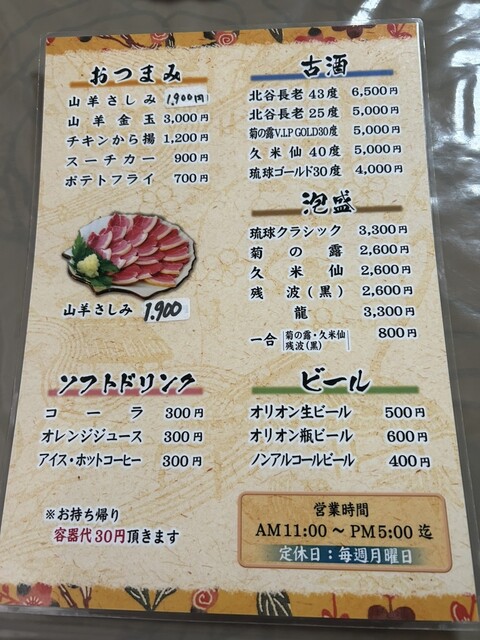 おつまみ
山羊さしみ 1.900円
山羊金玉 3,000円
チキンから揚 1,200円
スーチカー 900円
ポテトフライ 700円
山羊さしみ 1.900
ソフトドリンク
コーラ 300円
オレンジジュース 300円
アイス・ホットコーヒー 300円
※お持ち帰り
容器代30円頂きます
古酒
北谷長老 43度 6,500円
北谷長老 25度 5,000円
菊の露V.I.P GOLD30度 5,000円
久米仙 40度 5,000円
琉球ゴールド30度 4,000円
泡盛
琉球クラシック 3,300円
菊の露 2,600円
久米仙 2,600円
残波(黒) 2,600円
龍 3,300円
一合 菊の露・久米仙 800円
残波(黒)
ビール
オリオン生ビール 500円
オリオン瓶ビール 600円
ノンアルコールビール 400円
営業時間
AM11:00～PM5:00迄
定休日：毎週月曜日